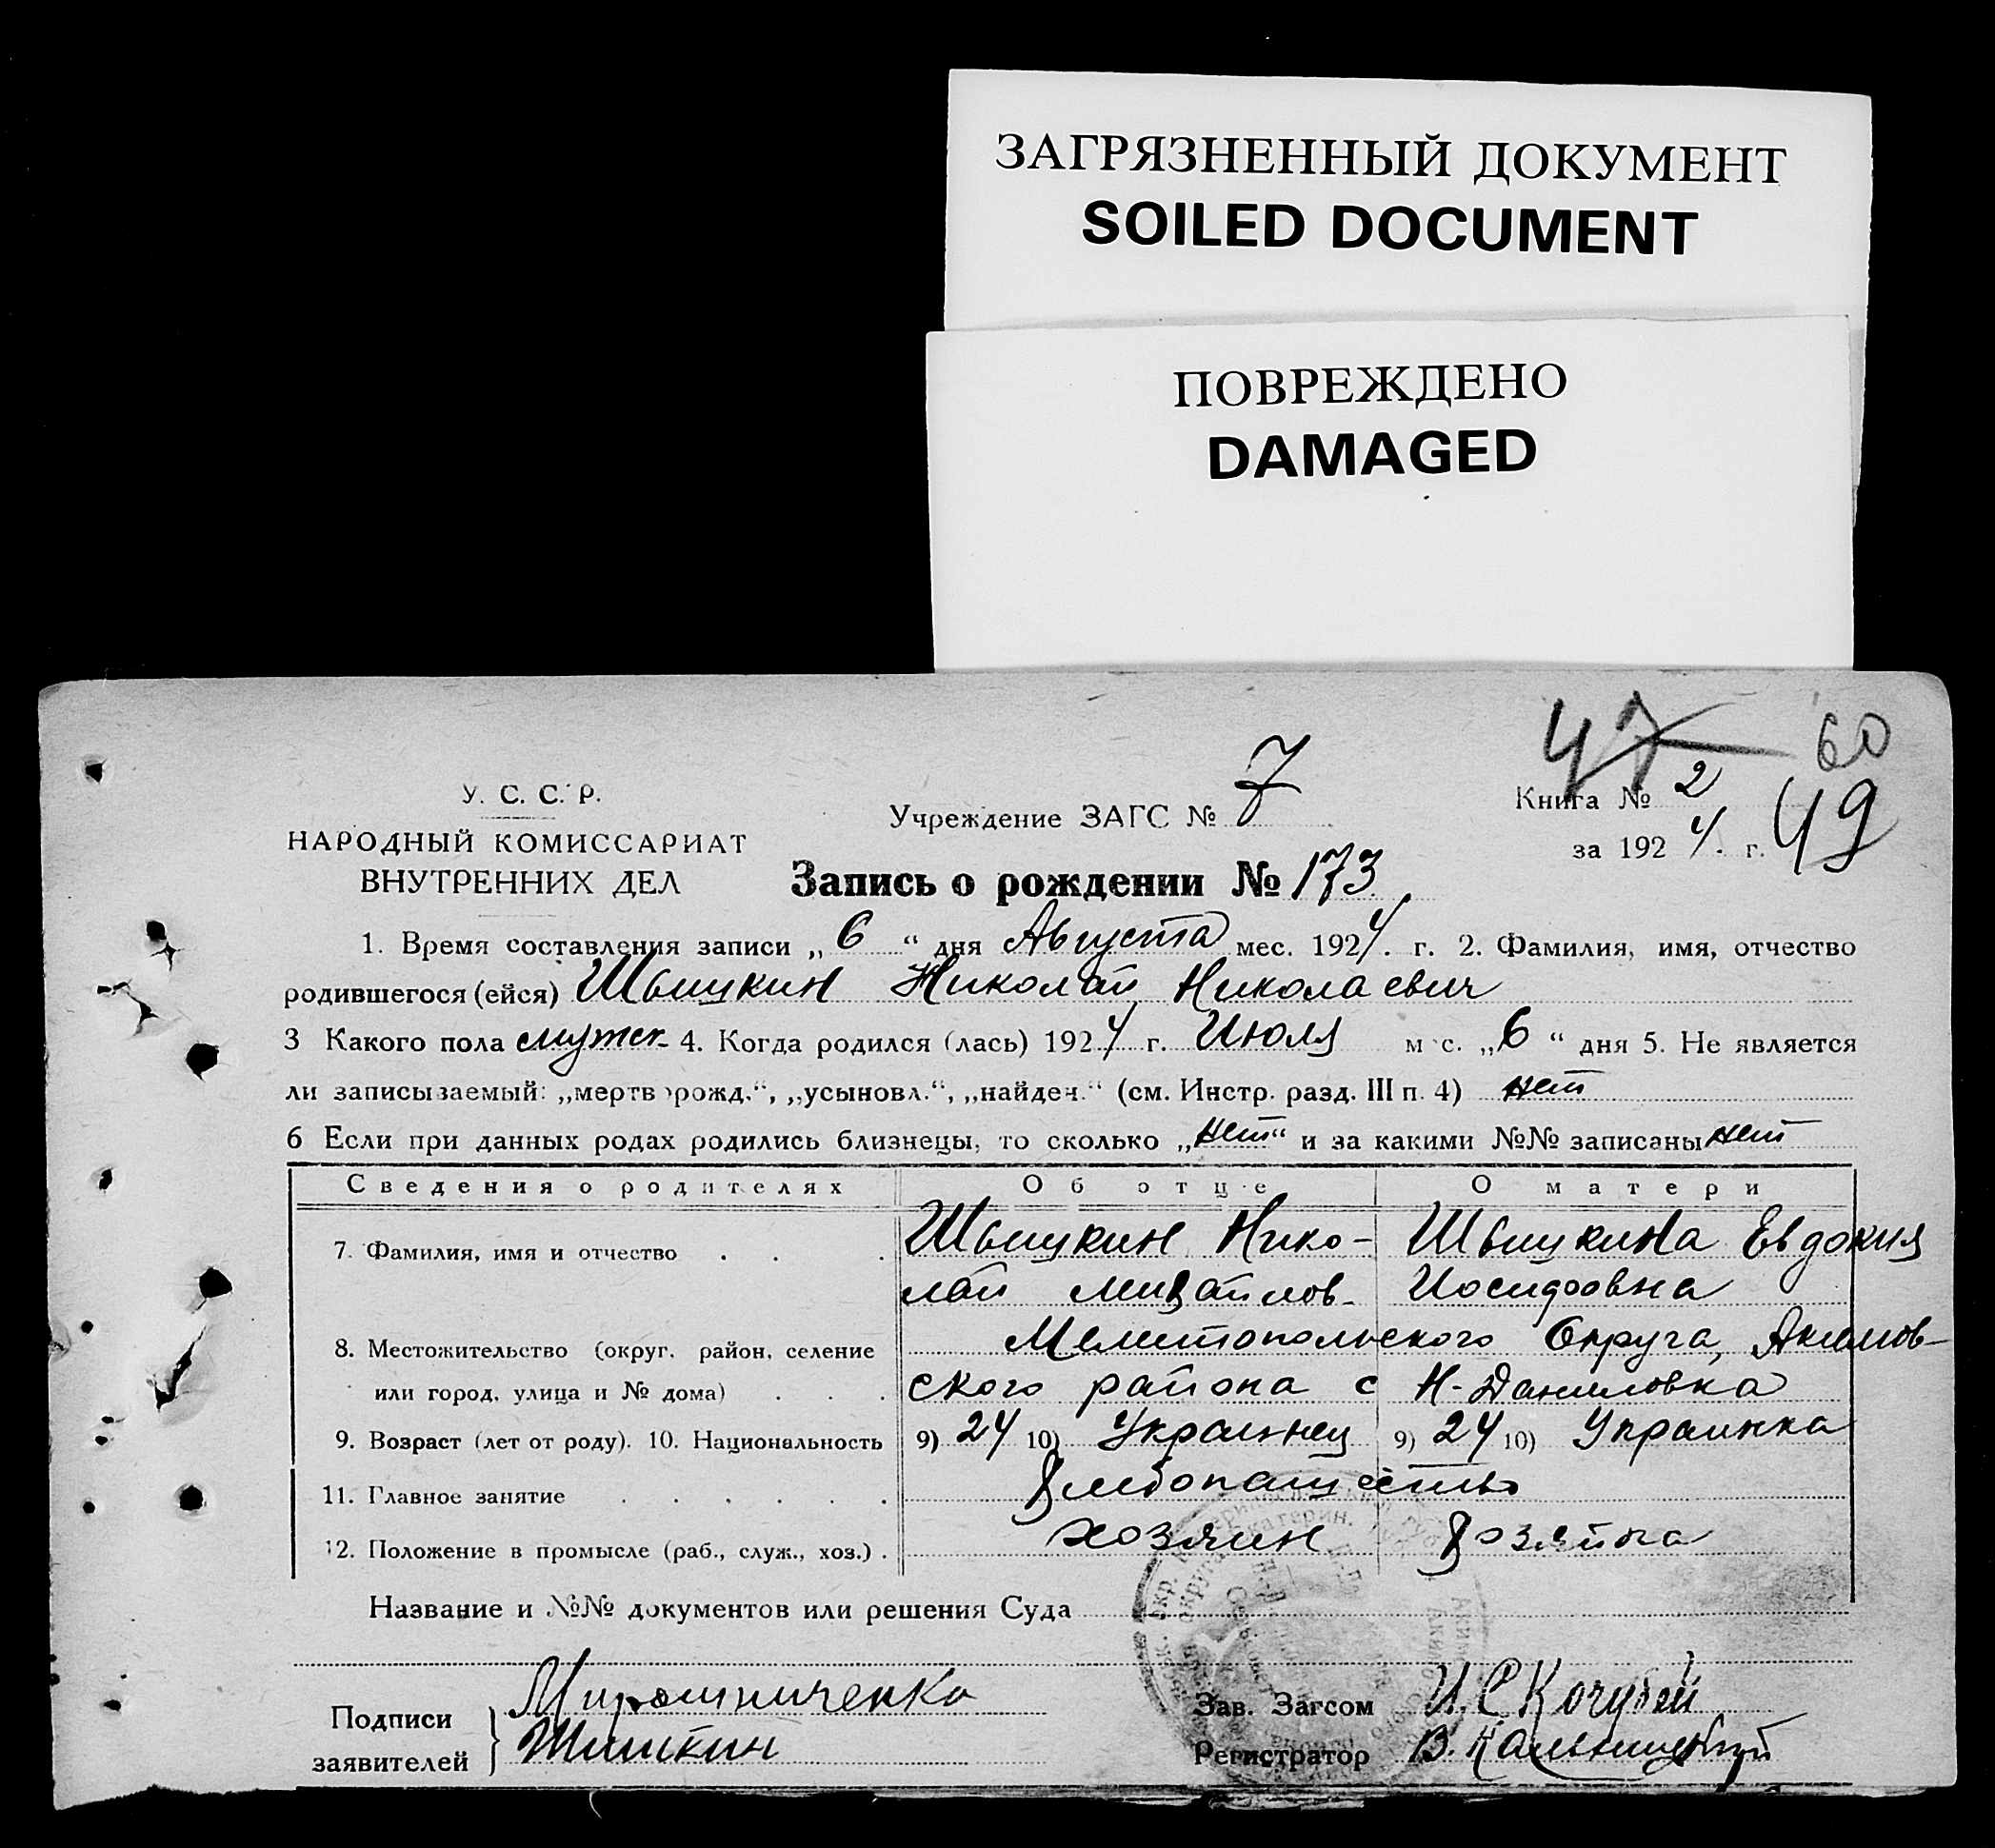 ЗАГРЯЗНЕННЫЙ ДОКУМЕНТ
SOILED DOCUMENT
ПОВРЕЖДЕНО
DAMAGED
47 60
У. С. С. Р.
НАРОДНЫЙ КОМИССАРИАТ
ВНУТРЕННИХ ДЕЛ
Учреждение ЗАГС № 7
Книга № 2
за 1924. г. 49
Запись о рождении № 173
1. Время составления записи „6“ дня Августа мес. 1924. г. 2. Фамилия, имя, отчество
родившегося (ейся) Швыцкин Николай Николаевич
3 Какого пола мужск. 4. Когда родился (лась) 1924 г. Июля мес. „6“ дня 5. Не является
ли записываемый: „мертворожд.“, „усыновл.“, „найден.“ (см. Инстр. разд. III п. 4) нет
6 Если при данных родах родились близнецы, то сколько „нет“ и за какими №№ записаны нет
Сведения о родителях Об отце О матери
7. Фамилия, имя и отчество . . . Швыцкин Нико- Швыцкина Евдокия
лай Михайлов- Иосифовна
8. Местожительство (округ, район, селение Мелитопольского Округа, Акимов-
или город, улица и № дома) . . . ского района с Н-Даниловка
9. Возраст (лет от роду). 10. Национальность 9) 24 10) Украинец 9) 24 10) Украинка
11. Главное занятие . . . . . . Хлебопашество
12. Положение в промысле (раб., служ., хоз.) . хозяин Хозяйка
Название и №№ документов или решения Суда
Подписи заявителей } Мирошниченко
Шишкин
Зав. Загсом И. С Кочубей
Регистратор В. Кальницкий